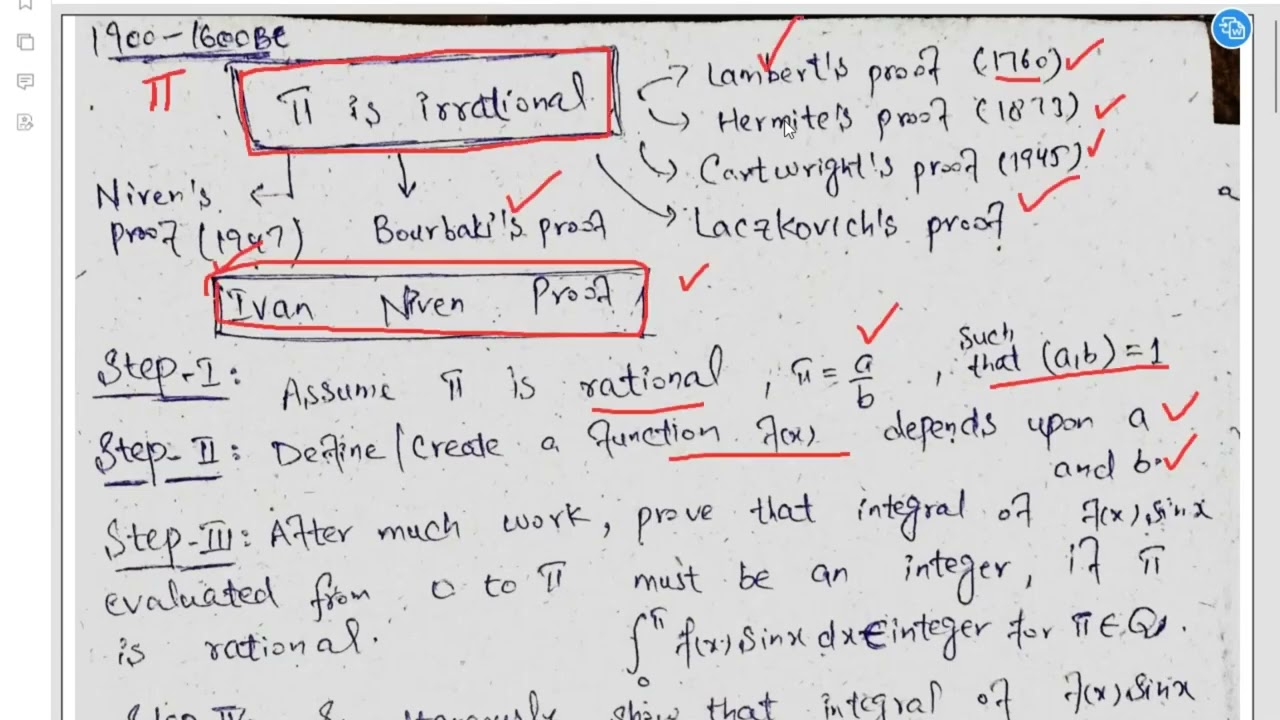 1900-1600BC
π
π is irrational
Lambert's proof (1760)
Hermite's proof (1873)
Cartwright's proof (1945)
Laczkovich's proof
Niven's
proof (1947)
Bourbaki's proof
a
Ivan Niven Proof
Step-I: Assume π is rational, π = a/b, such that (a,b)=1
Step-II: Define/Create a function f(x) depends upon a
and b.
Step-III: After much work, prove that integral of f(x).sinx
evaluated from 0 to π must be an integer, if π
is rational.
∫₀^π f(x).sinx dx ∈ integer for π ∈ Q.
show that integral of f(x).sinx